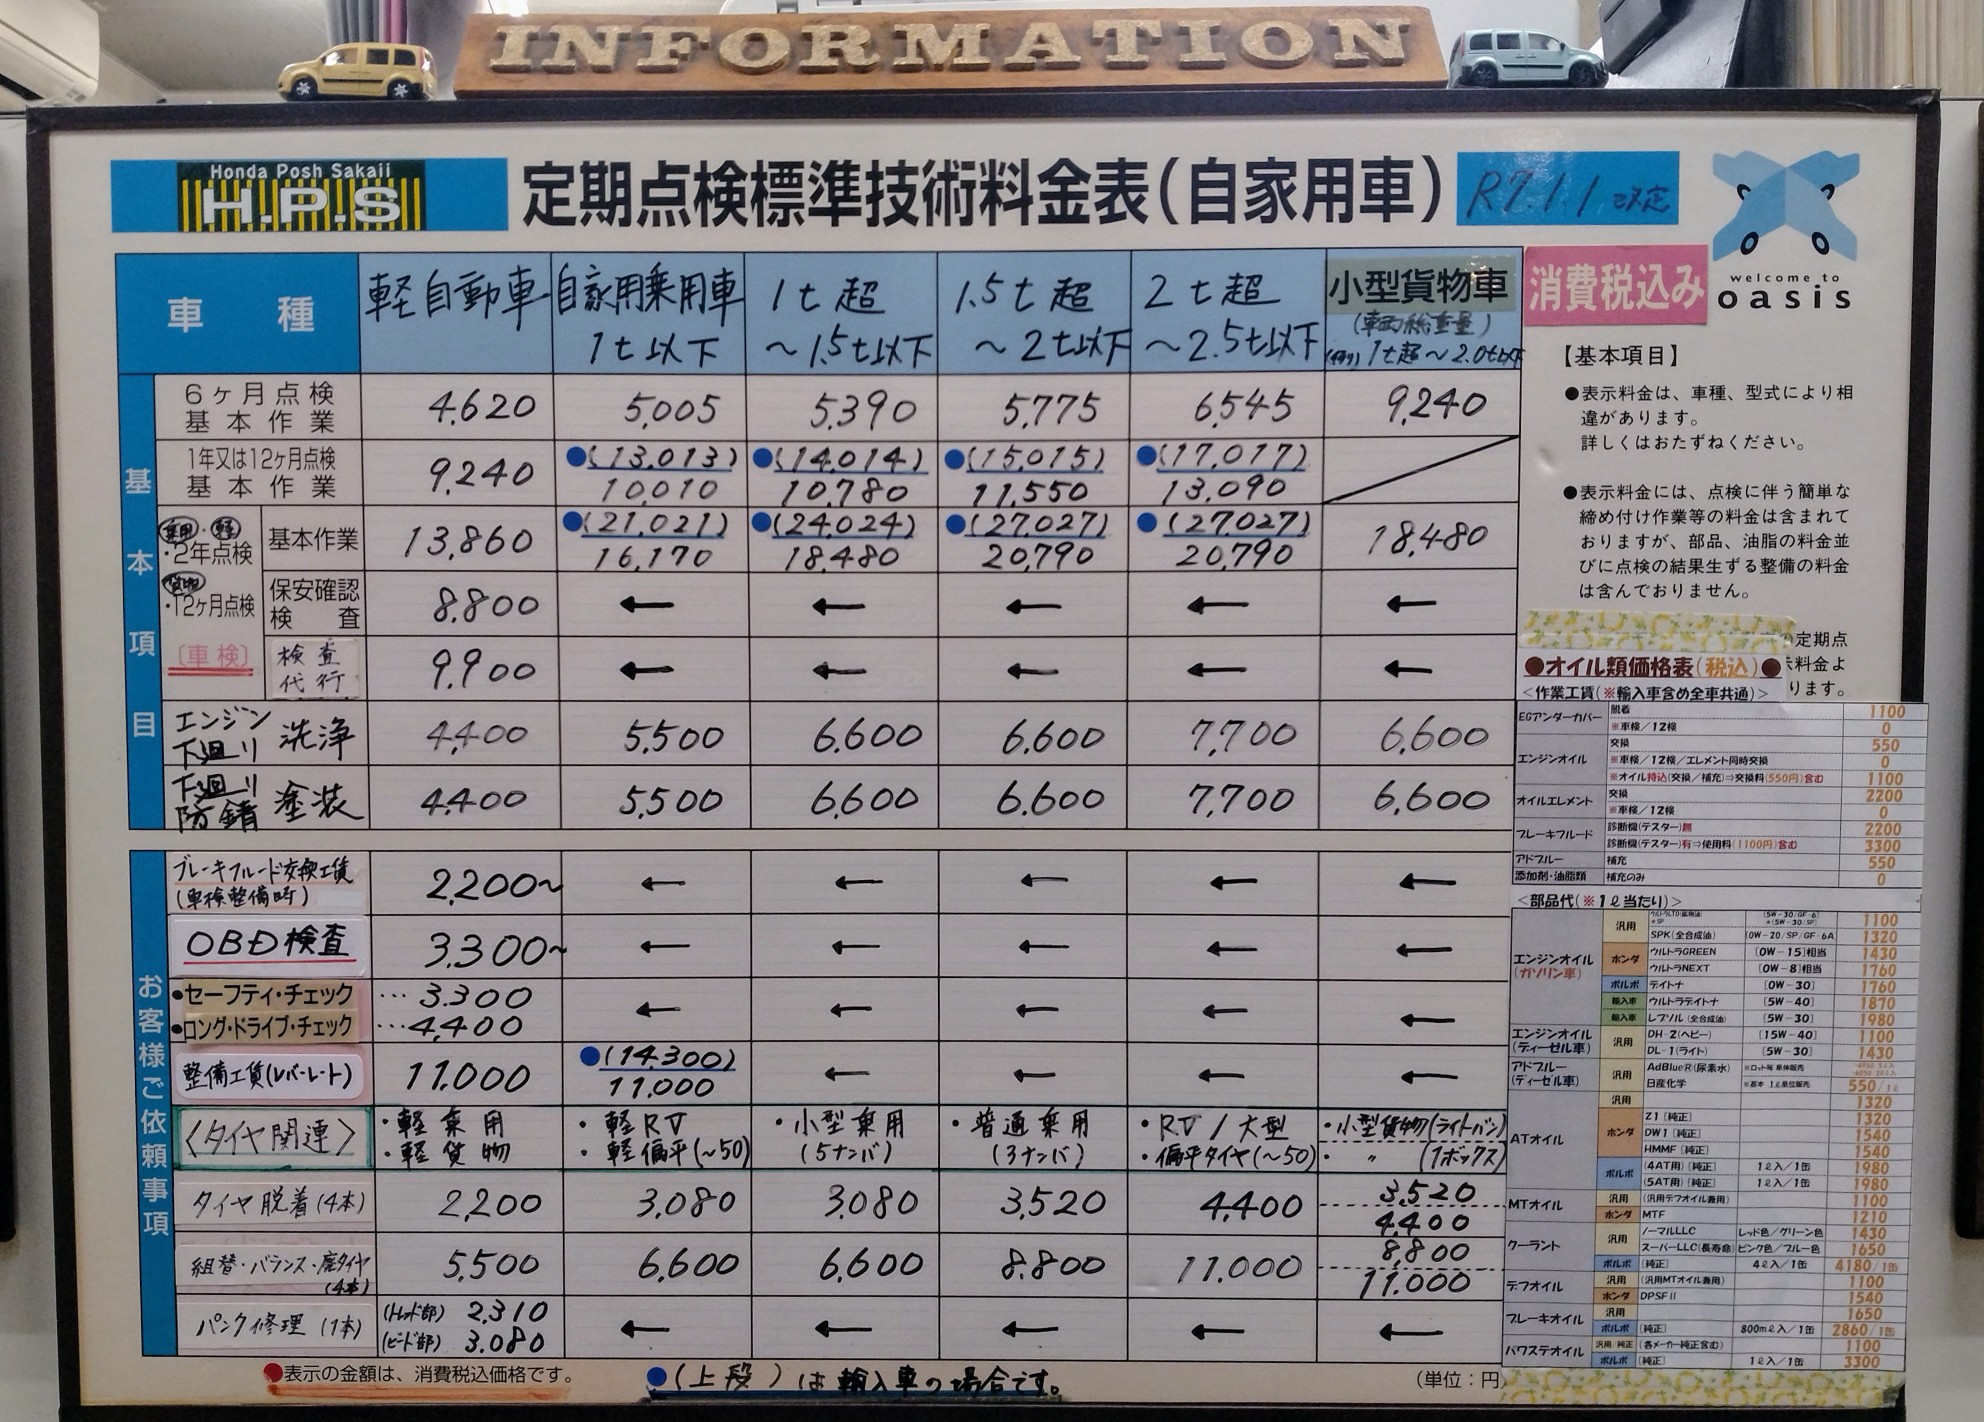 INFORMATION
Honda Posh Sakaii
H.P.S
定期点検標準技術料金表(自家用車)
R7.1.1 改定
消費税込み
welcome to
oasis
車 種 軽自動車 自家用乗用車 1t以下 1t超 ～1.5t以下 1.5t超 ～2t以下 2t超 ～2.5t以下 小型貨物車 (車両総重量) (例) 1t超～2.0t以下
基本項目
6ヶ月点検 基本作業 4,620 5,005 5,390 5,775 6,545 9,240
1年又は12ヶ月点検 基本作業 9,240 ●(13,013) 10,010 ●(14,014) 10,780 ●(15,015) 11,550 ●(17,017) 13,090
乗用・軽
・2年点検
貨物
・12ヶ月点検
〔車検〕
基本作業 13,860 ●(21,021) 16,170 ●(24,024) 18,480 ●(27,027) 20,790 ●(27,027) 20,790 18,480
保安確認検査 8,800 ← ← ← ← ←
検査代行 9,900 ← ← ← ← ←
エンジン下廻り 洗浄 4,400 5,500 6,600 6,600 7,700 6,600
下廻り防錆 塗装 4,400 5,500 6,600 6,600 7,700 6,600
お客様ご依頼事項
ブレーキフルード交換工賃 (車検整備時) 2,200～ ← ← ← ← ←
OBD検査 3,300～ ← ← ← ← ←
●セーフティ・チェック …3,300 ← ← ← ← ←
●ロング・ドライブ・チェック …4,400
整備工賃(レバーレート) 11,000 ●(14,300) 11,000 ← ← ← ←
〈タイヤ関連〉 ・軽乗用 ・軽貨物 ・軽RV ・軽偏平(～50) ・小型乗用 (5ナンバ) ・普通乗用 (3ナンバ) ・RV/大型 ・偏平タイヤ(～50) ・小型貨物(ライトバン) ・ 〃 (1ボックス)
タイヤ脱着(4本) 2,200 3,080 3,080 3,520 4,400 3,520 4,400
組替・バランス・廃タイヤ (4本) 5,500 6,600 6,600 8,800 11,000 8,800 11,000
パンク修理(1本) (トレッド部) 2,310 (ビード部) 3,080 ← ← ← ← ←
●表示の金額は、消費税込価格です。
●(上段)は輸入車の場合です。
(単位:円)
【基本項目】
●表示料金は、車種、型式により相
違があります。
詳しくはおたずねください。
●表示料金には、点検に伴う簡単な
締め付け作業等の料金は含まれて
おりますが、部品、油脂の料金並
びに点検の結果生ずる整備の料金
は含んでおりません。
定期点
料金よ
ります。
●オイル類価格表(税込)●
<作業工賃(※輸入車含め全車共通)>
EGアンダーカバー 脱着 1100
※車検/12検 0
エンジンオイル 交換 550
※車検/12検/エレメント同時交換 0
※オイル持込(交換/補充)⇒交換料(550円)含む 1100
オイルエレメント 交換 2200
※車検/12検 0
ブレーキフルード 診断機(テスター)無 2200
診断機(テスター)有⇒使用料(1100円)含む 3300
アドブルー 補充 550
添加剤・油脂類 補充のみ 0
<部品代(※1ℓ当たり)>
エンジンオイル (ガソリン車) 汎用 1100
SPK(全合成油) [0W-20/SP/GF-6A] 1320
ホンダ ウルトラGREEN [0W-15]相当 1430
ウルトラNEXT [0W-8]相当 1760
ボルボ デイトナ [0W-30] 1760
輸入車 ウルトラデイトナ [5W-40] 1870
輸入車 レプソル(全合成油) [5W-30] 1980
エンジンオイル (ディーゼル車) 汎用 DH-2(ヘビー) [15W-40] 1100
DL-1(ライト) [5W-30] 1430
アドブルー (ディーゼル車) 汎用 AdBlue®(尿素水)
日産化学 ※基本 1ℓ単位販売 550/1ℓ
ATオイル 汎用 1320
ホンダ Z1 [純正] 1320
DW1 [純正] 1540
HMMF [純正] 1540
ボルボ (4AT用) [純正] 1ℓ入/1缶 1980
(5AT用) [純正] 1ℓ入/1缶 1980
MTオイル 汎用 (汎用デフオイル兼用) 1100
ホンダ MTF 1210
クーラント 汎用 ノーマルLLC レッド色/グリーン色 1430
スーパーLLC(長寿命) ピンク色/ブルー色 1650
ボルボ [純正] 4ℓ入/1缶 4180/1缶
デフオイル 汎用 (汎用MTオイル兼用) 1100
ホンダ DPSFⅡ 1540
ブレーキオイル 汎用 1650
ボルボ [純正] 800mℓ入/1缶 2860/1缶
パワステオイル 汎用/純正 (各メーカー純正含む) 1100
ボルボ [純正] 1ℓ入/1缶 3300